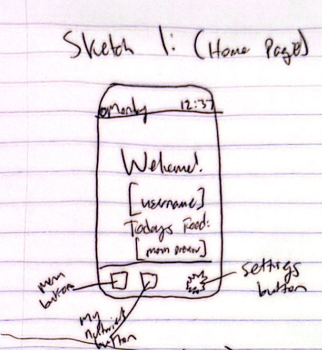 Sketch 1: (Home Page)
12:37
Welcome!
[username]
Todays Food:
[menu preview]
menu button
settings button
my nutrient button